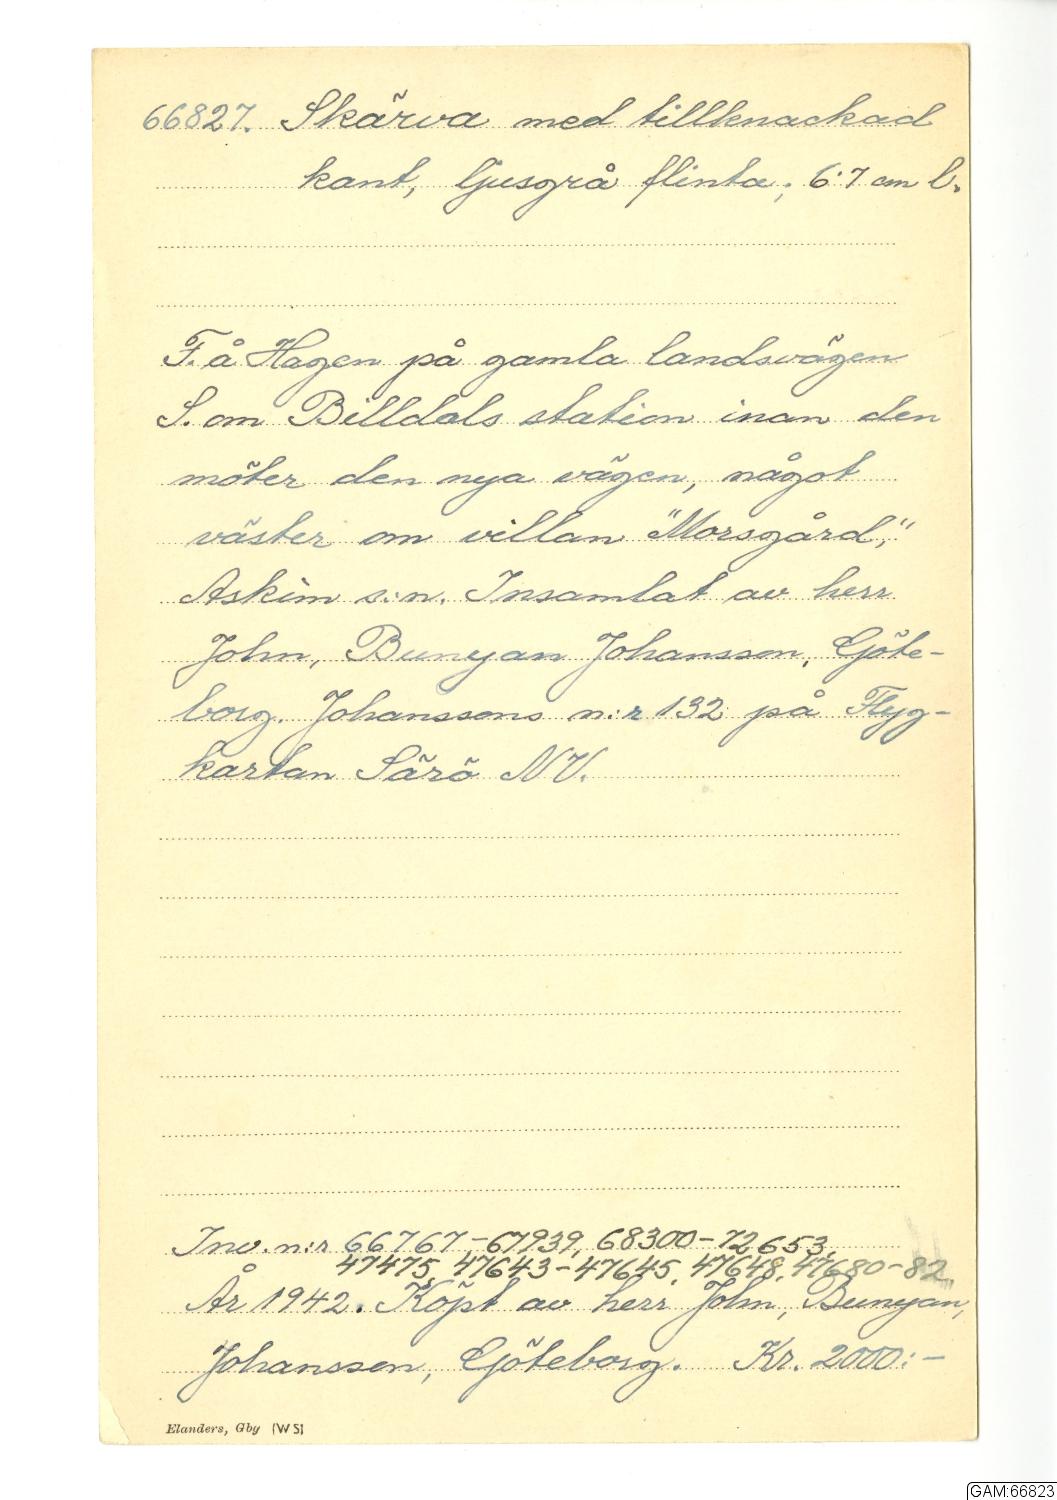 66827. Skärva med tillknackad
kant, ljusgrå flinta; 6·7 cm l.
F. å Hagen på gamla landsvägen
S. om Billdals station inan den
möter den nya vägen, något
väster om villan "Morsgård",
Askim s:n. Insamlat av herr
John, Bunyan Johansson, Göte-
borg. Johanssons n:r 132 på Flyg-
kartan Särö NV.
Inv. n:r 66767-67939, 68300-72653,
47475, 47643-47645, 47648, 47680-82
År 1942. Köpt av herr John, Bunyan,
Johansson, Göteborg. Kr. 2000:-
Elanders, Gby (WS)
GAM:66823